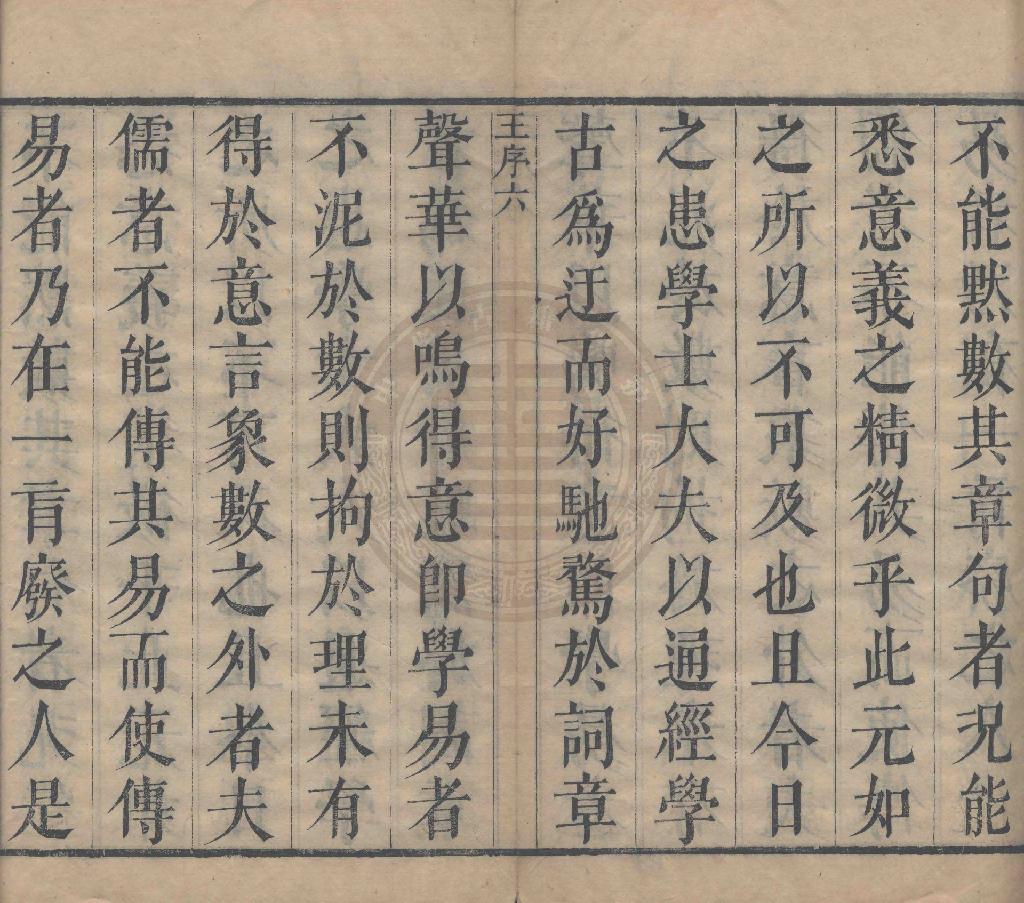 不能黙數其章句者况能
悉意義之精微乎此元如
之所以不可及也且今日
之患學士大夫以通經學
古爲迂而好馳騖於詞章
王序六
聲華以鳴得意卽學易者
不泥於數則拘於理未有
得於意言象數之外者夫
儒者不能傳其易而使傳
易者乃在一肓廢之人是